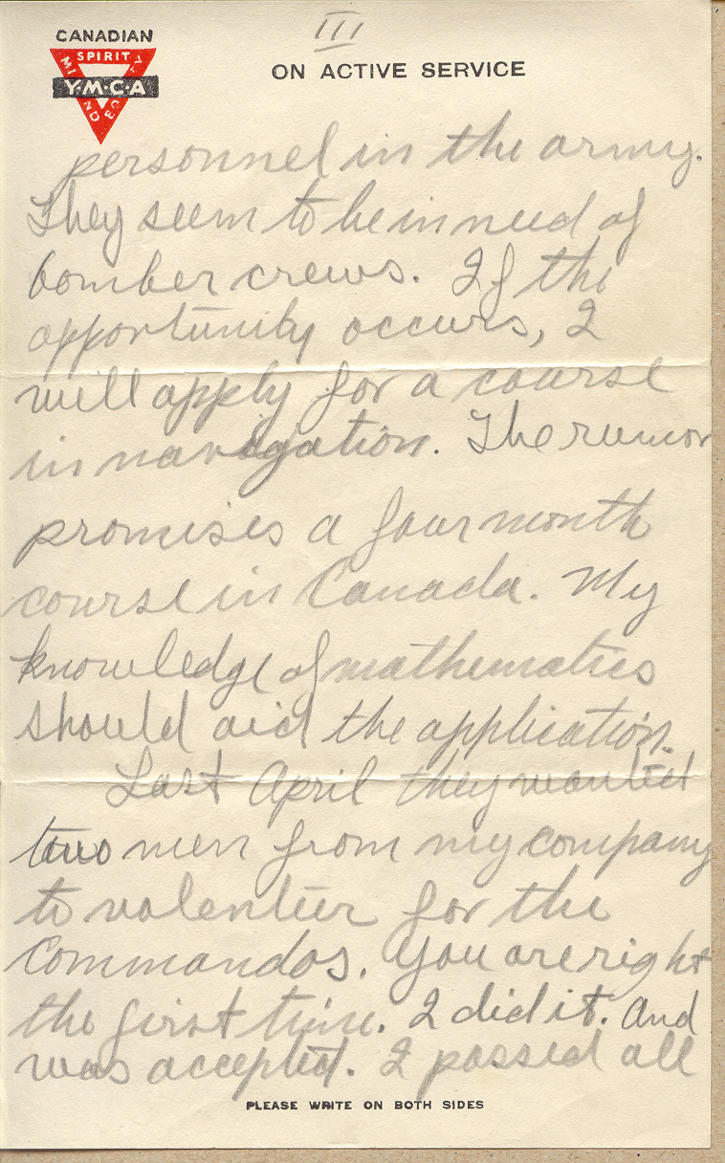 III
CANADIAN
SPIRIT
MIND
BODY
Y·M·C·A
ON ACTIVE SERVICE
personnel in the army.
They seem to be in need of
bomber crews. If the
opportunity occurs, I
will apply for a course
in navigation. The rumor
promises a four month
course in Canada. My
knowledge of mathematics
should aid the application.
Last April they wanted
two men from my company
to volenteer for the
commandos. You are right
the first time. I did it. And
was accepted. I passed all
PLEASE WRITE ON BOTH SIDES